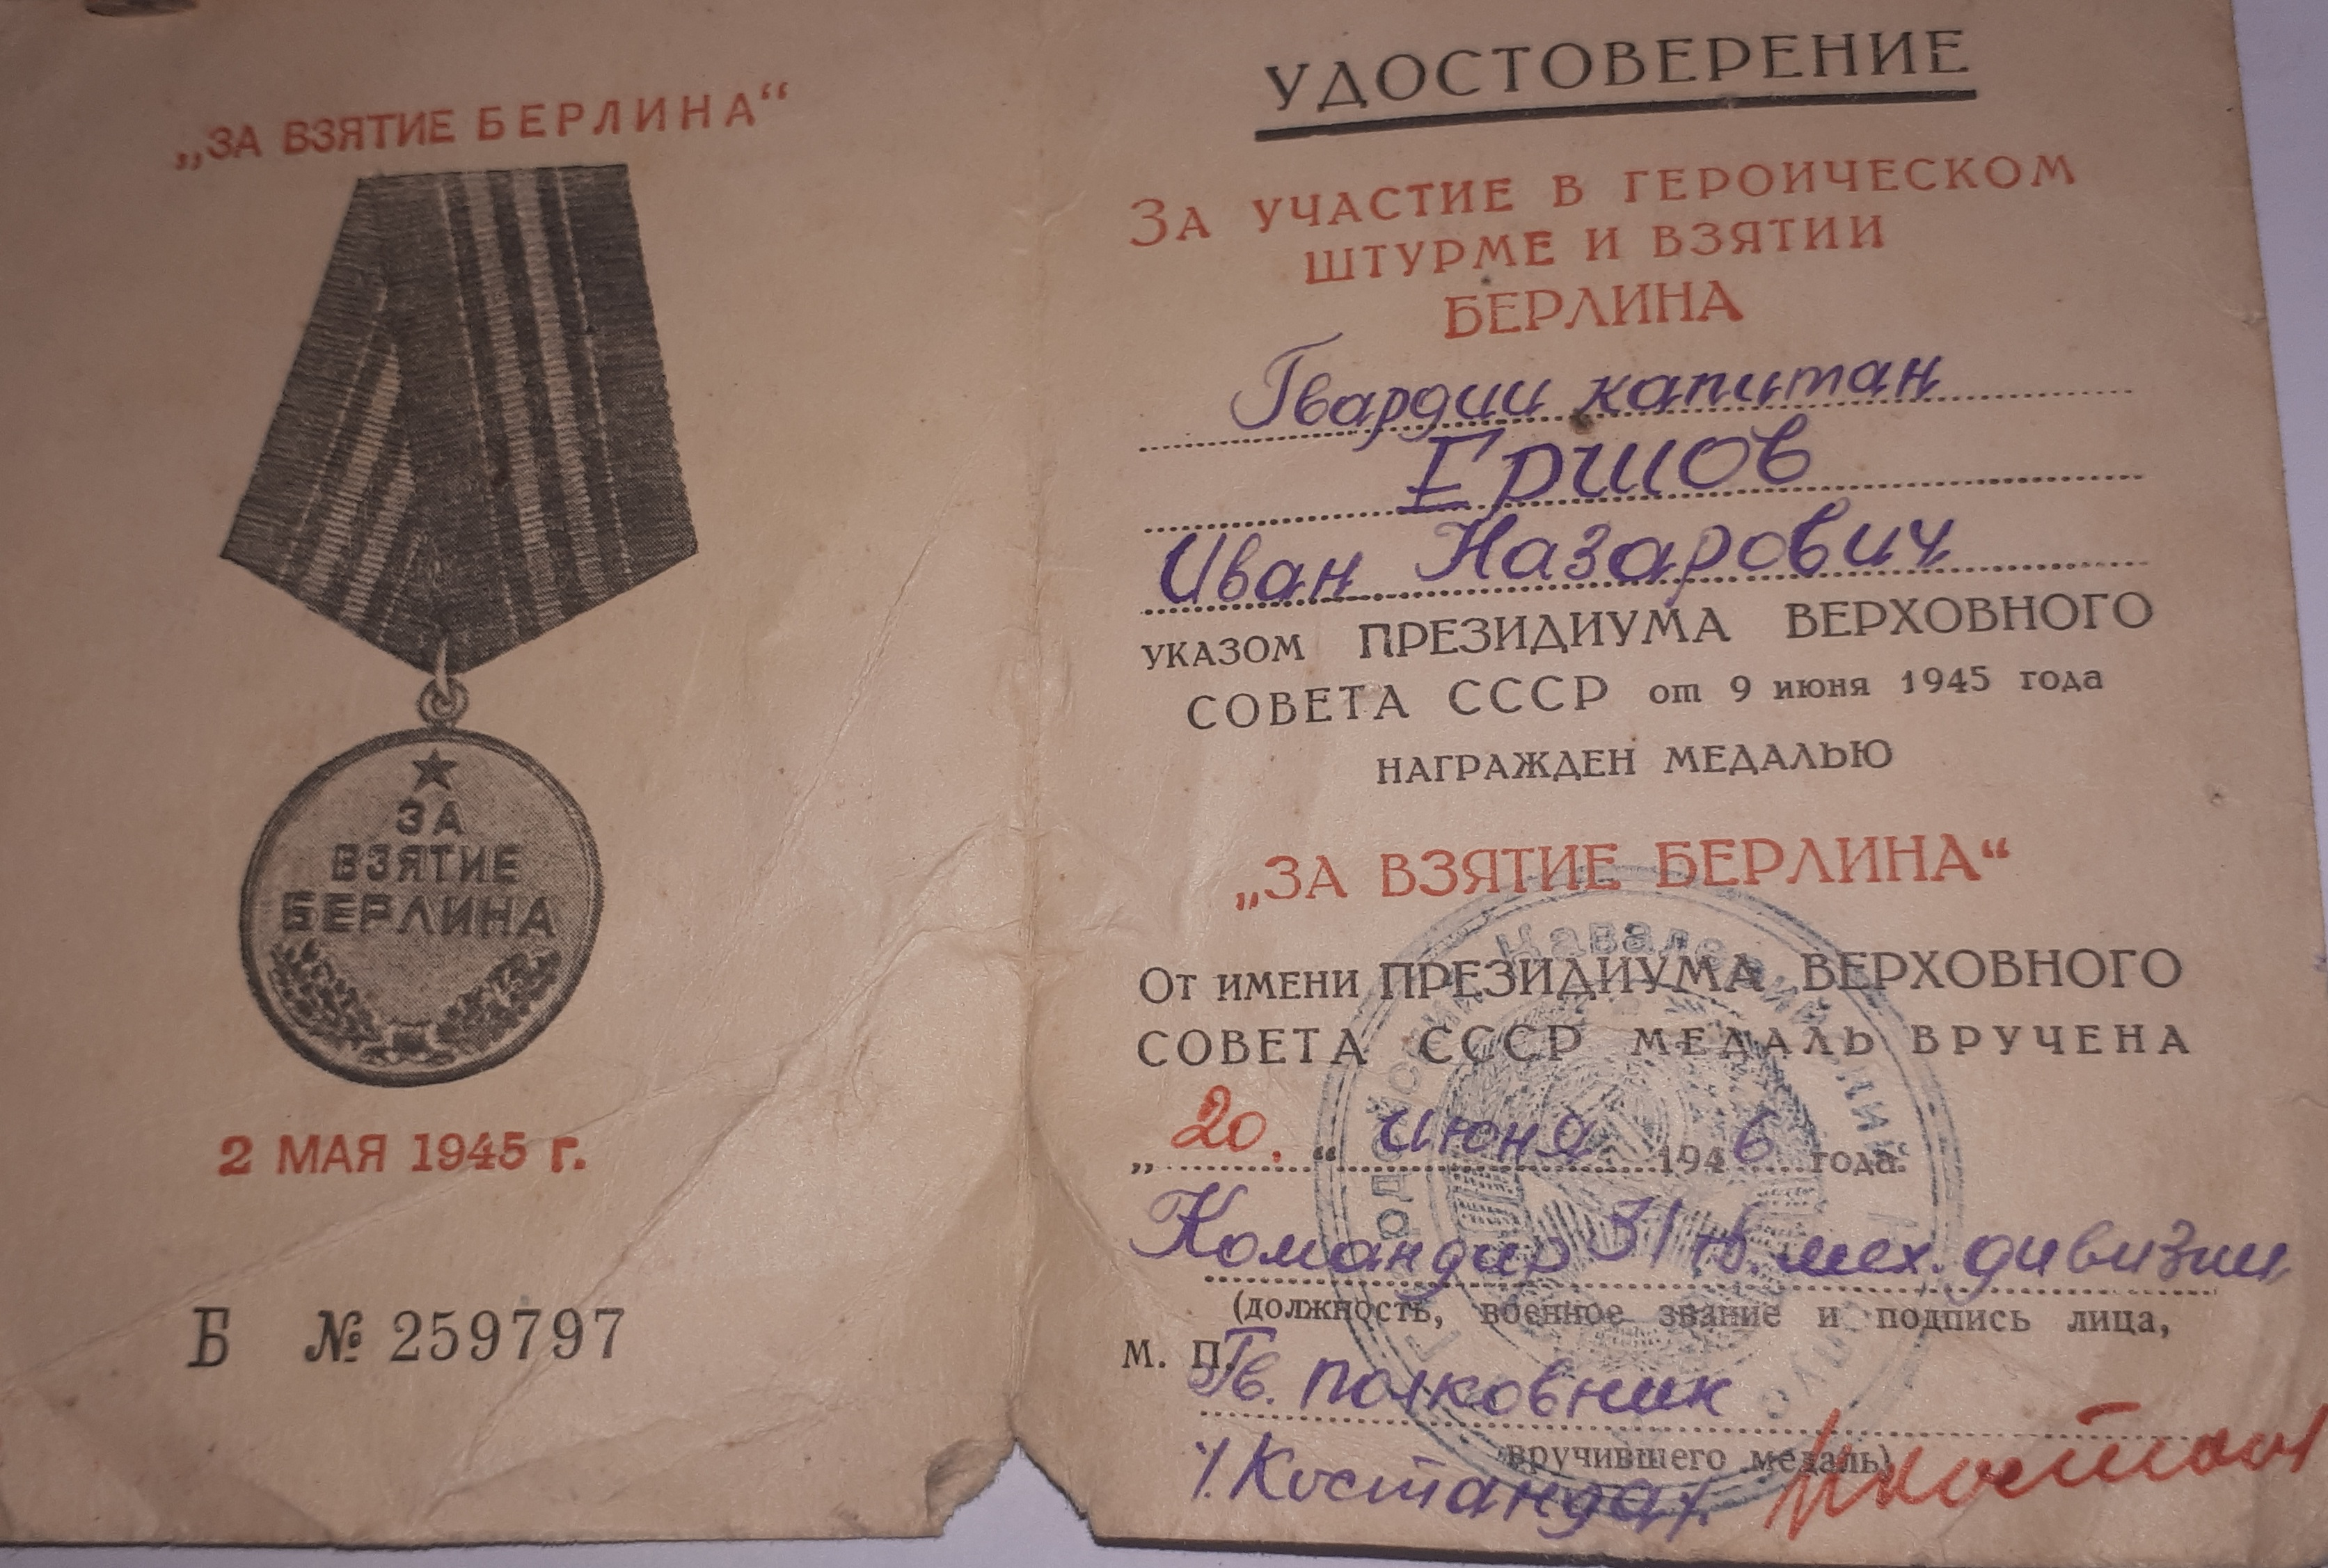 „ЗА ВЗЯТИЕ БЕРЛИНА“
ЗА
ВЗЯТИЕ
БЕРЛИНА
2 МАЯ 1945 г.
Б № 259797
УДОСТОВЕРЕНИЕ
ЗА УЧАСТИЕ В ГЕРОИЧЕСКОМ
ШТУРМЕ И ВЗЯТИИ
БЕРЛИНА
Гвардии капитан
Ершов
Иван Назарович
УКАЗОМ ПРЕЗИДИУМА ВЕРХОВНОГО
СОВЕТА СССР от 9 июня 1945 года
НАГРАЖДЕН МЕДАЛЬЮ
„ЗА ВЗЯТИЕ БЕРЛИНА“
ОТ ИМЕНИ ПРЕЗИДИУМА ВЕРХОВНОГО
СОВЕТА СССР МЕДАЛЬ ВРУЧЕНА
„20.“ июня 1946 года.
Командир 31 мех. дивизии
(должность, военное звание и подпись лица,
М. П.
Гв. полковник
вручившего медаль)